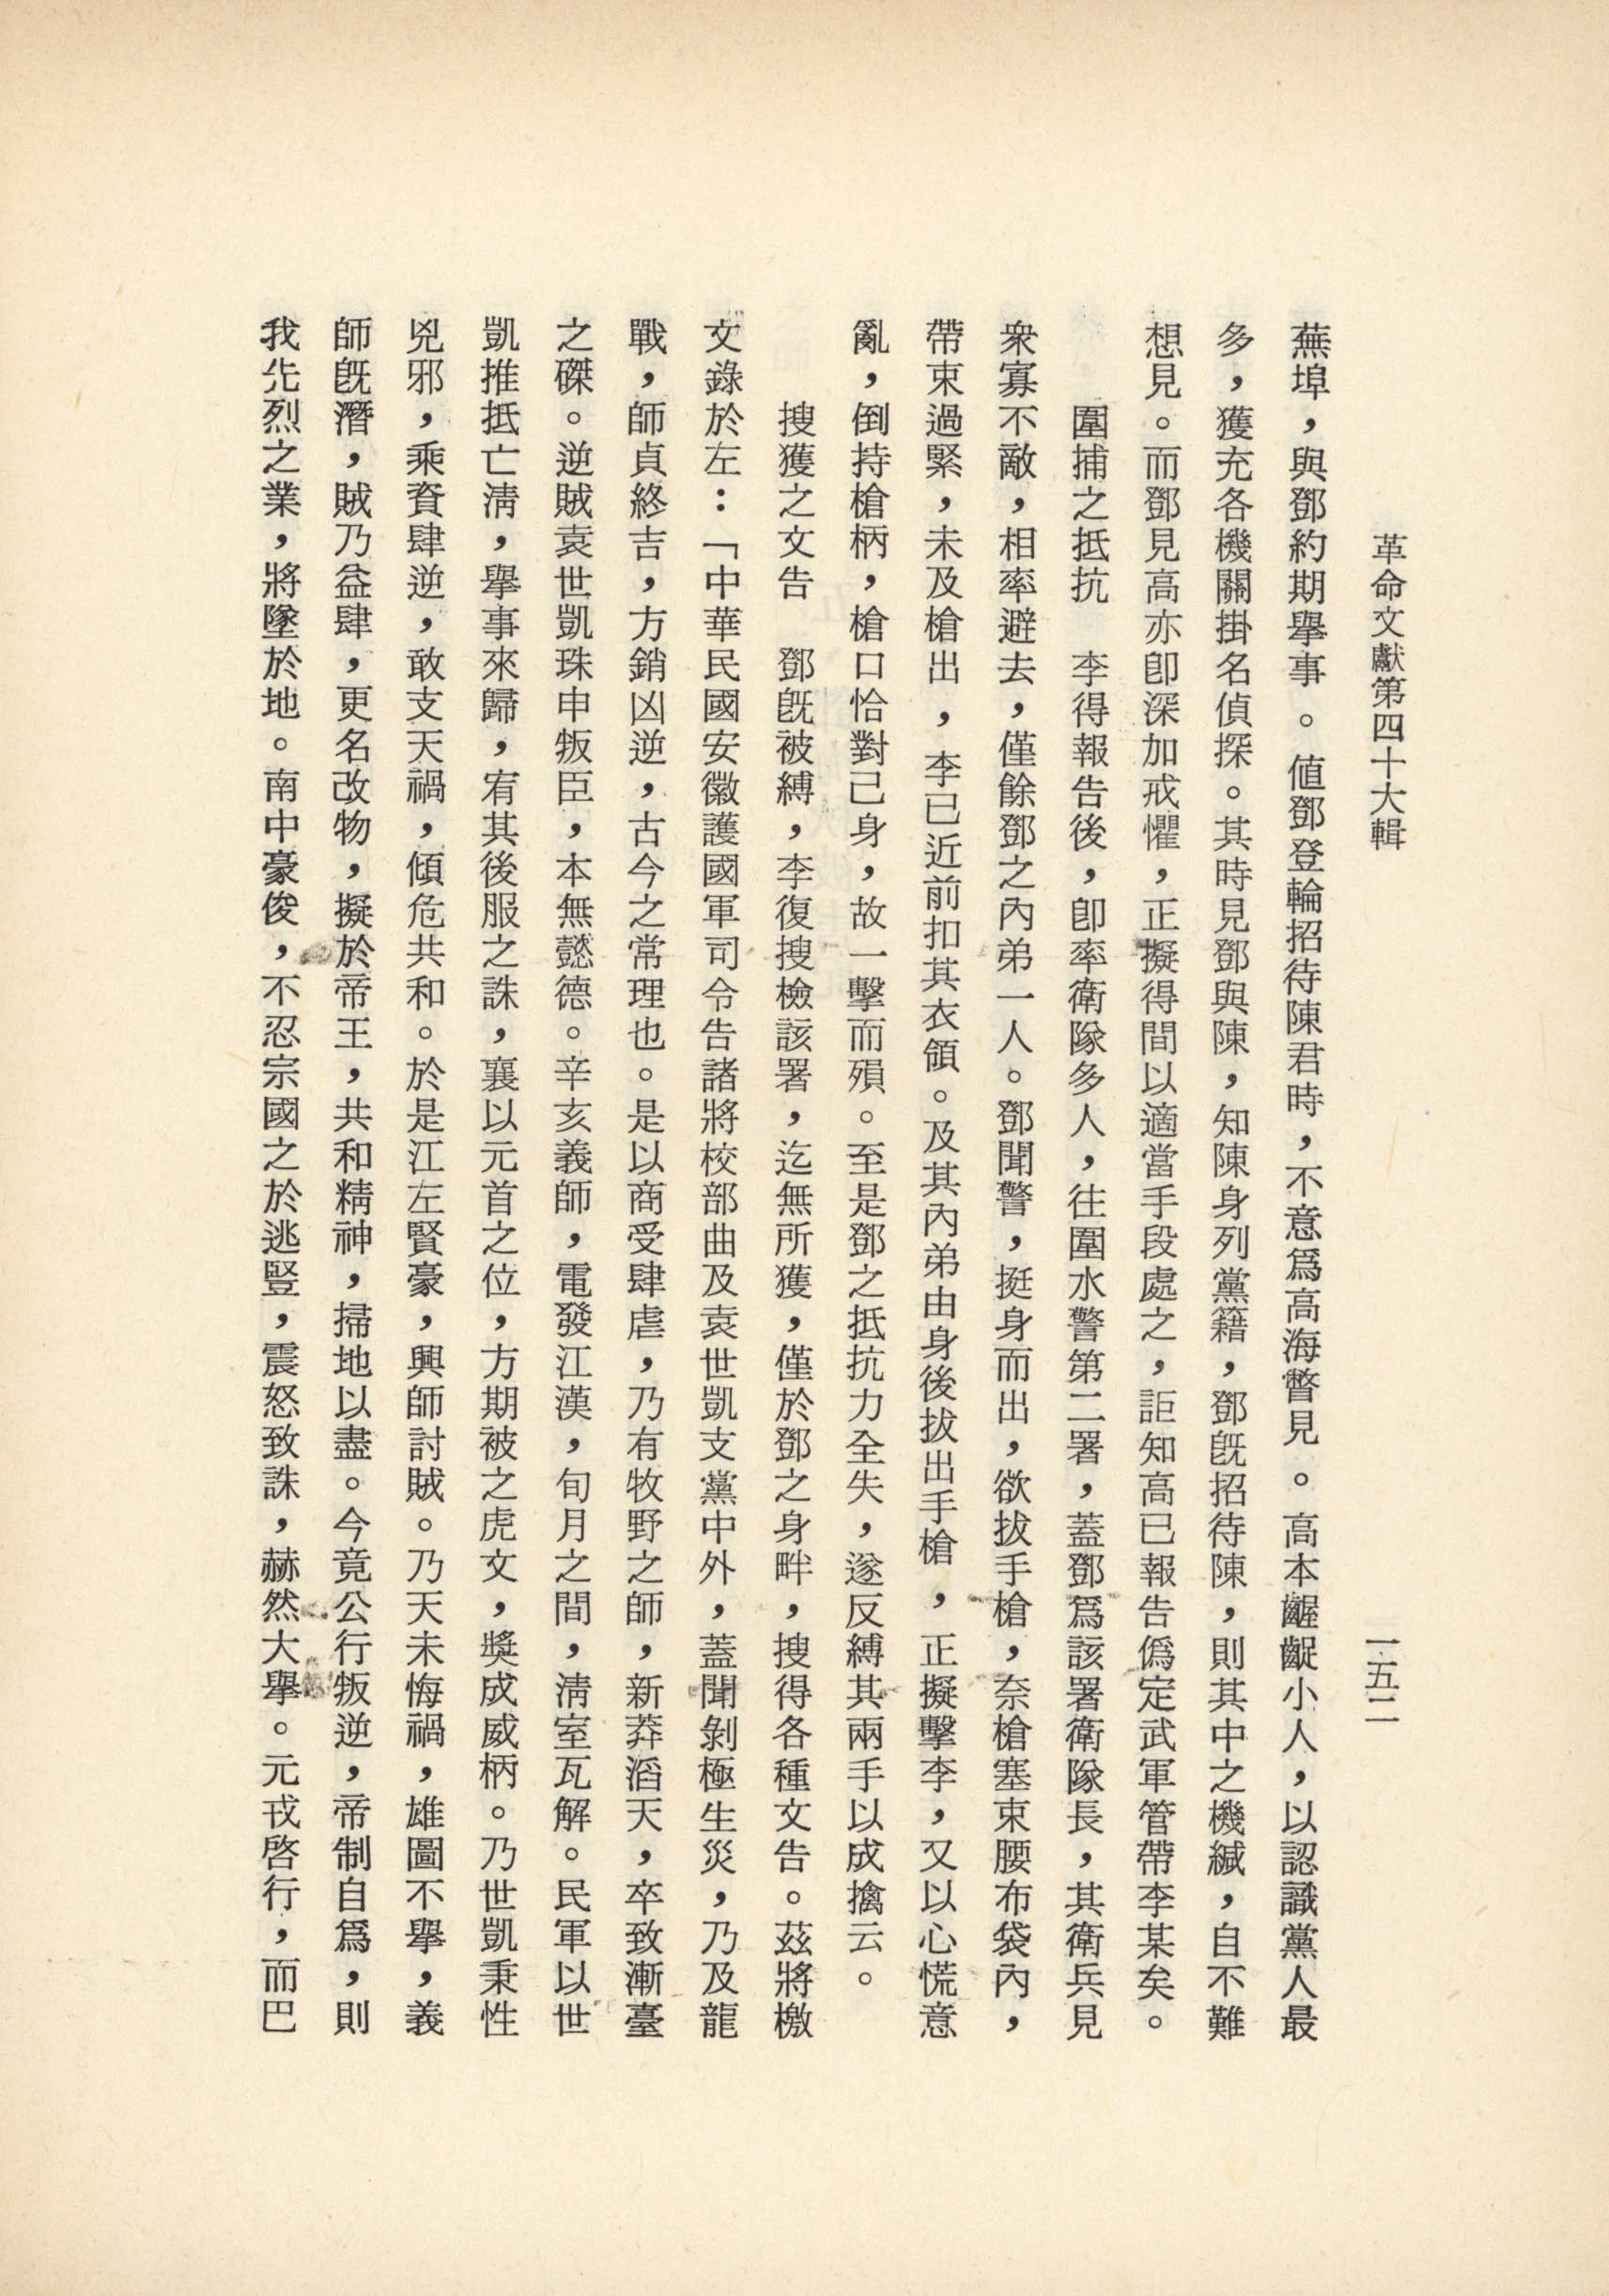 革命文獻第四十六輯
一五二
蕪埠，與鄧約期舉事。值鄧登輪招待陳君時，不意爲高海瞥見。高本齷齪小人，以認識黨人最
多，獲充各機關掛名偵探。其時見鄧與陳，知陳身列黨籍，鄧旣招待陳，則其中之機緘，自不難
想見。而鄧見高亦卽深加戒懼，正擬得間以適當手段處之，詎知高已報告僞定武軍管帶李某矣。
圍捕之抵抗　李得報告後，卽率衛隊多人，往圍水警第二署，蓋鄧爲該署衛隊長，其衛兵見
衆寡不敵，相率避去，僅餘鄧之內弟一人。鄧聞警，挺身而出，欲拔手槍，奈槍塞束腰布袋內，
帶束過緊，未及槍出，李已近前扣其衣領。及其內弟由身後拔出手槍，正擬擊李，又以心慌意
亂，倒持槍柄，槍口恰對己身，故一擊而殞。至是鄧之抵抗力全失，遂反縛其兩手以成擒云。
搜獲之文告　鄧旣被縛，李復搜檢該署，迄無所獲，僅於鄧之身畔，搜得各種文告。茲將檄
文錄於左：「中華民國安徽護國軍司令告諸將校部曲及袁世凱支黨中外，蓋聞剝極生災，乃及龍
戰，師貞終吉，方銷凶逆，古今之常理也。是以商受肆虐，乃有牧野之師，新莽滔天，卒致漸臺
之磔。逆賊袁世凱珠申叛臣，本無懿德。辛亥義師，電發江漢，旬月之間，淸室瓦解。民軍以世
凱推抵亡淸，舉事來歸，宥其後服之誅，襄以元首之位，方期被之虎文，獎成威柄。乃世凱秉性
兇邪，乘資肆逆，敢支天禍，傾危共和。於是江左賢豪，興師討賊。乃天未悔禍，雄圖不舉，義
師旣潛，賊乃益肆，更名改物，擬於帝王，共和精神，掃地以盡。今竟公行叛逆，帝制自爲，則
我先烈之業，將墜於地。南中豪俊，不忍宗國之於逃豎，震怒致誅，赫然大舉。元戎啓行，而巴